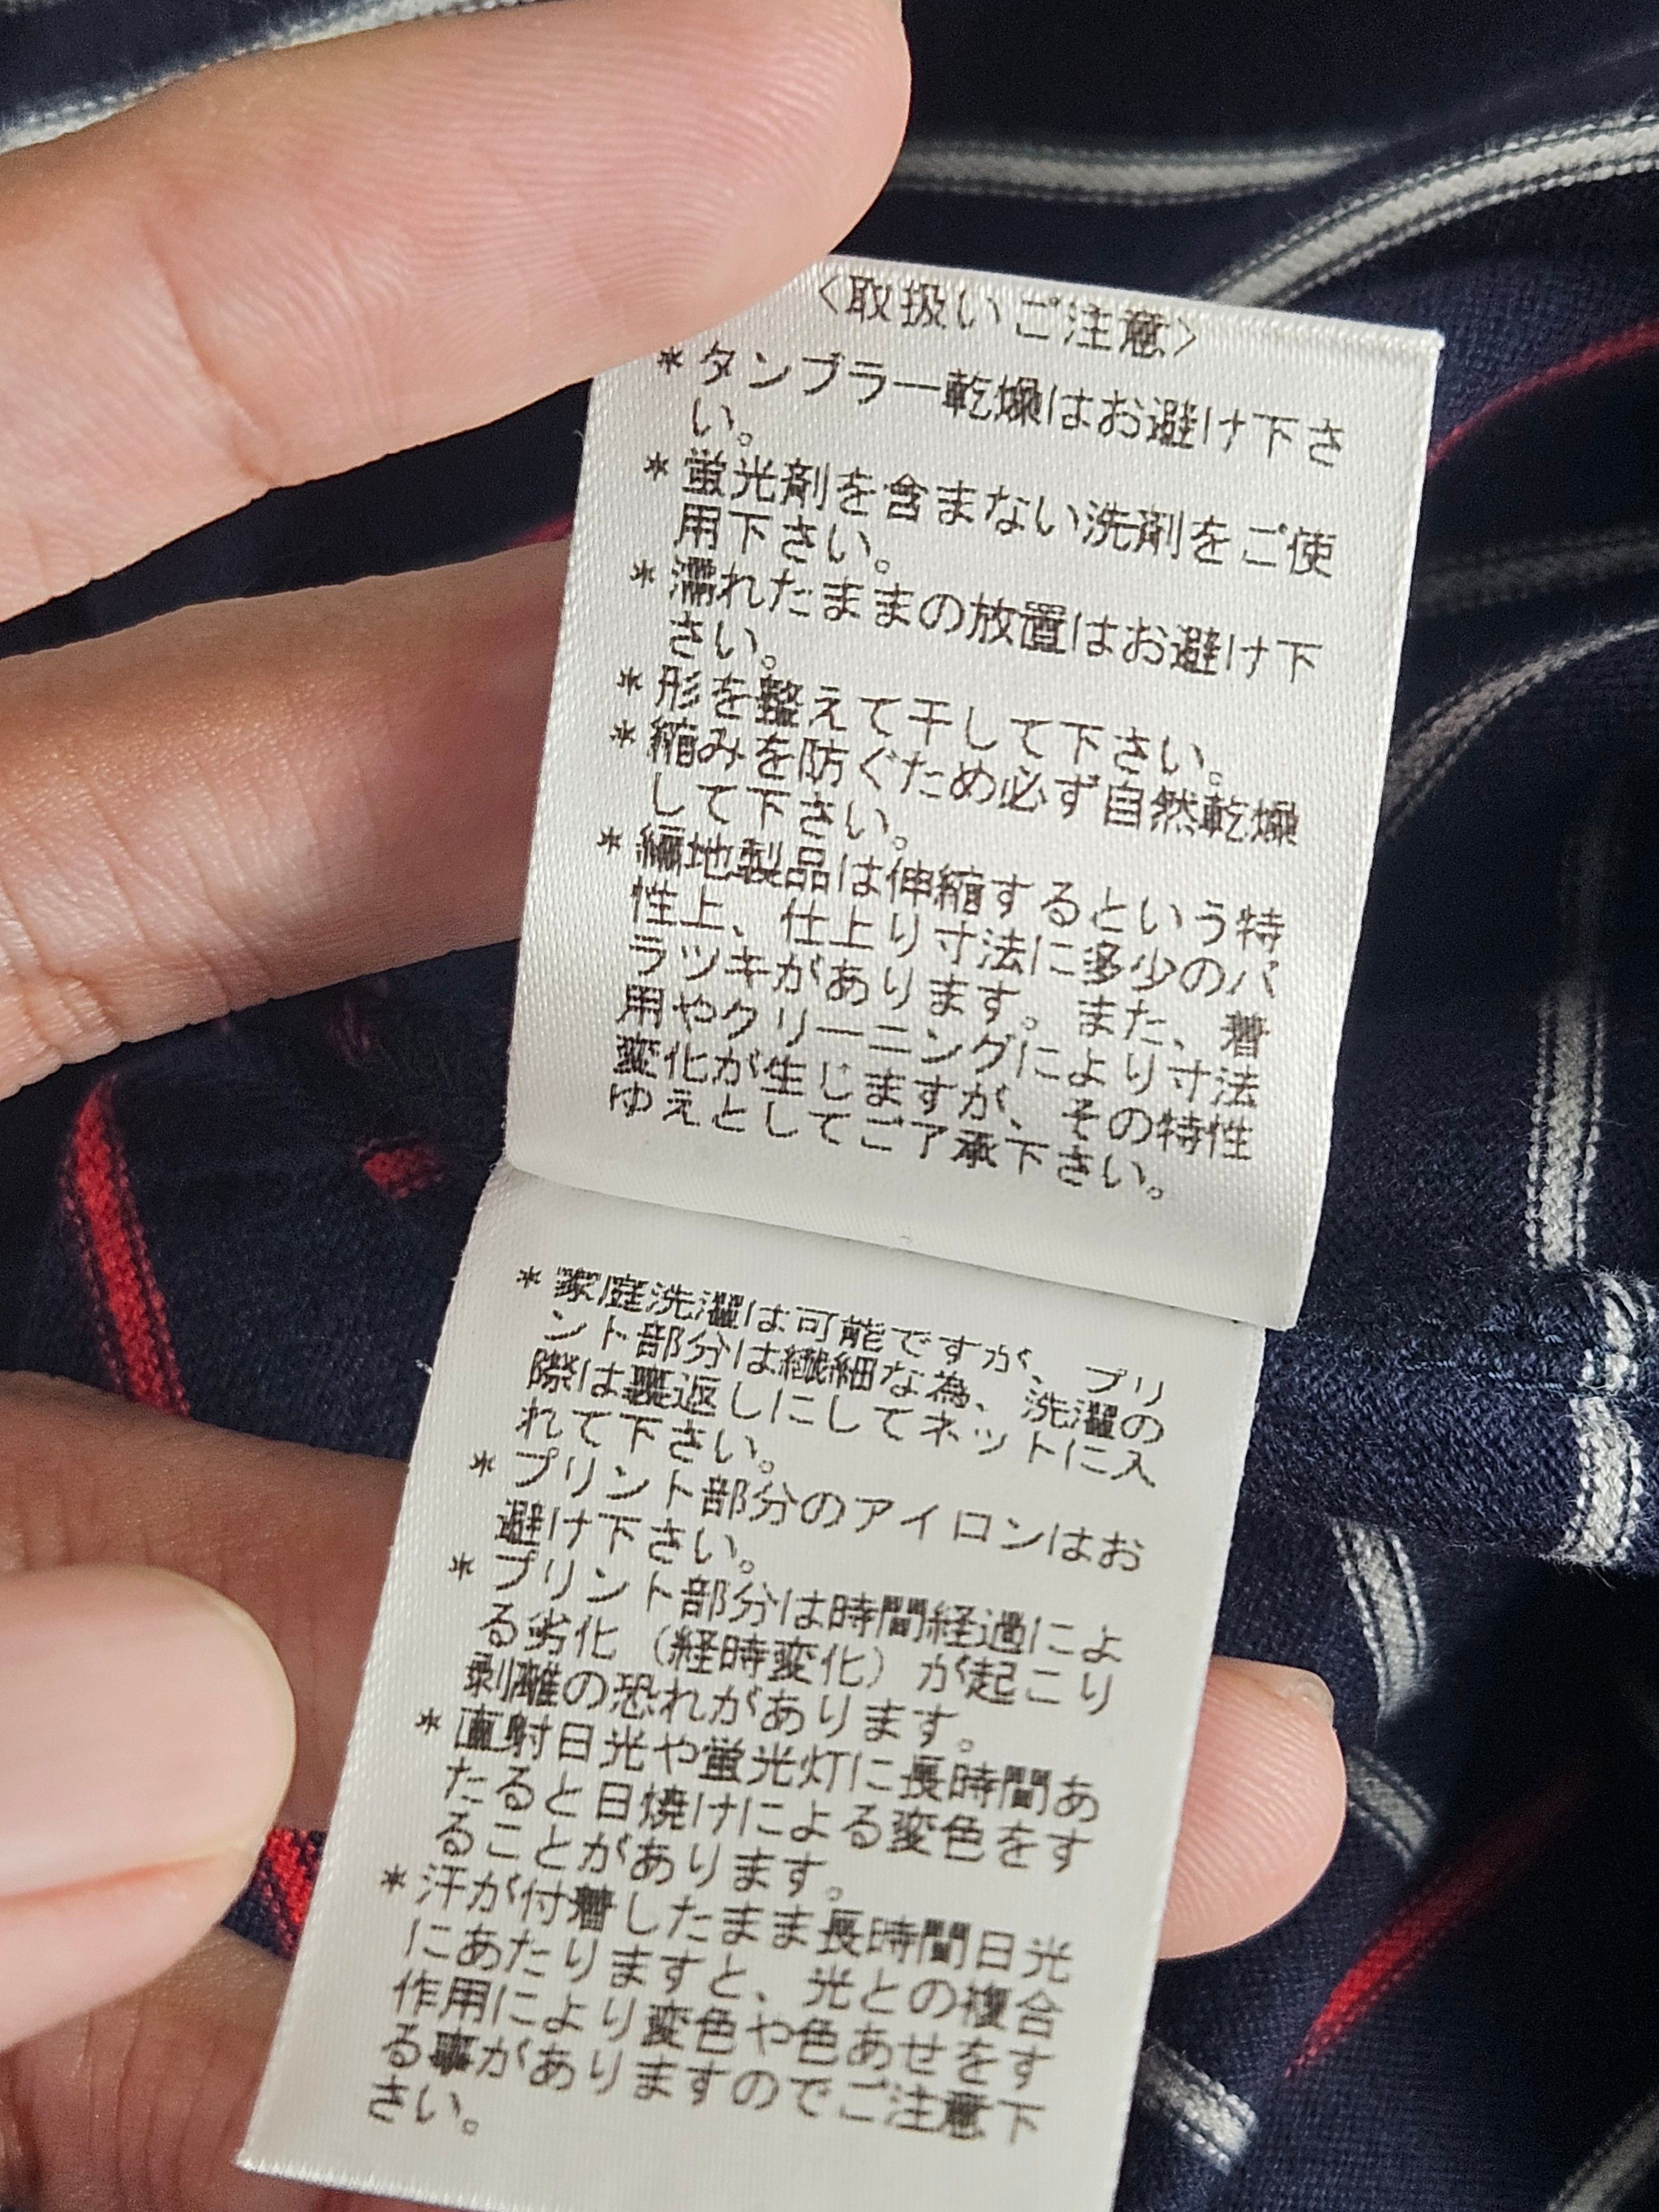 〈取扱いご注意〉
*タンブラー乾燥はお避け下さ
い。
*蛍光剤を含まない洗剤をご使
用下さい。
*濡れたままの放置はお避け下
さい。
*形を整えて干して下さい。
*縮みを防ぐため必ず自然乾燥
して下さい。
*編地製品は伸縮するという特
性上、仕上り寸法に多少のバ
ラツキがあります。また、着
用やクリーニングにより寸法
変化が生じますが、その特性
ゆえとしてご了承下さい。
*家庭洗濯は可能ですが、プリ
ント部分は繊細な為、洗濯の
際は裏返しにしてネットに入
れて下さい。
*プリント部分のアイロンはお
避け下さい。
*プリント部分は時間経過によ
る劣化（経時変化）が起こり
剥離の恐れがあります。
*直射日光や蛍光灯に長時間あ
たると日焼けによる変色をす
ることがあります。
*汗が付着したまま長時間日光
にあたりますと、光との複合
作用により変色や色あせをす
る事がありますのでご注意下
さい。